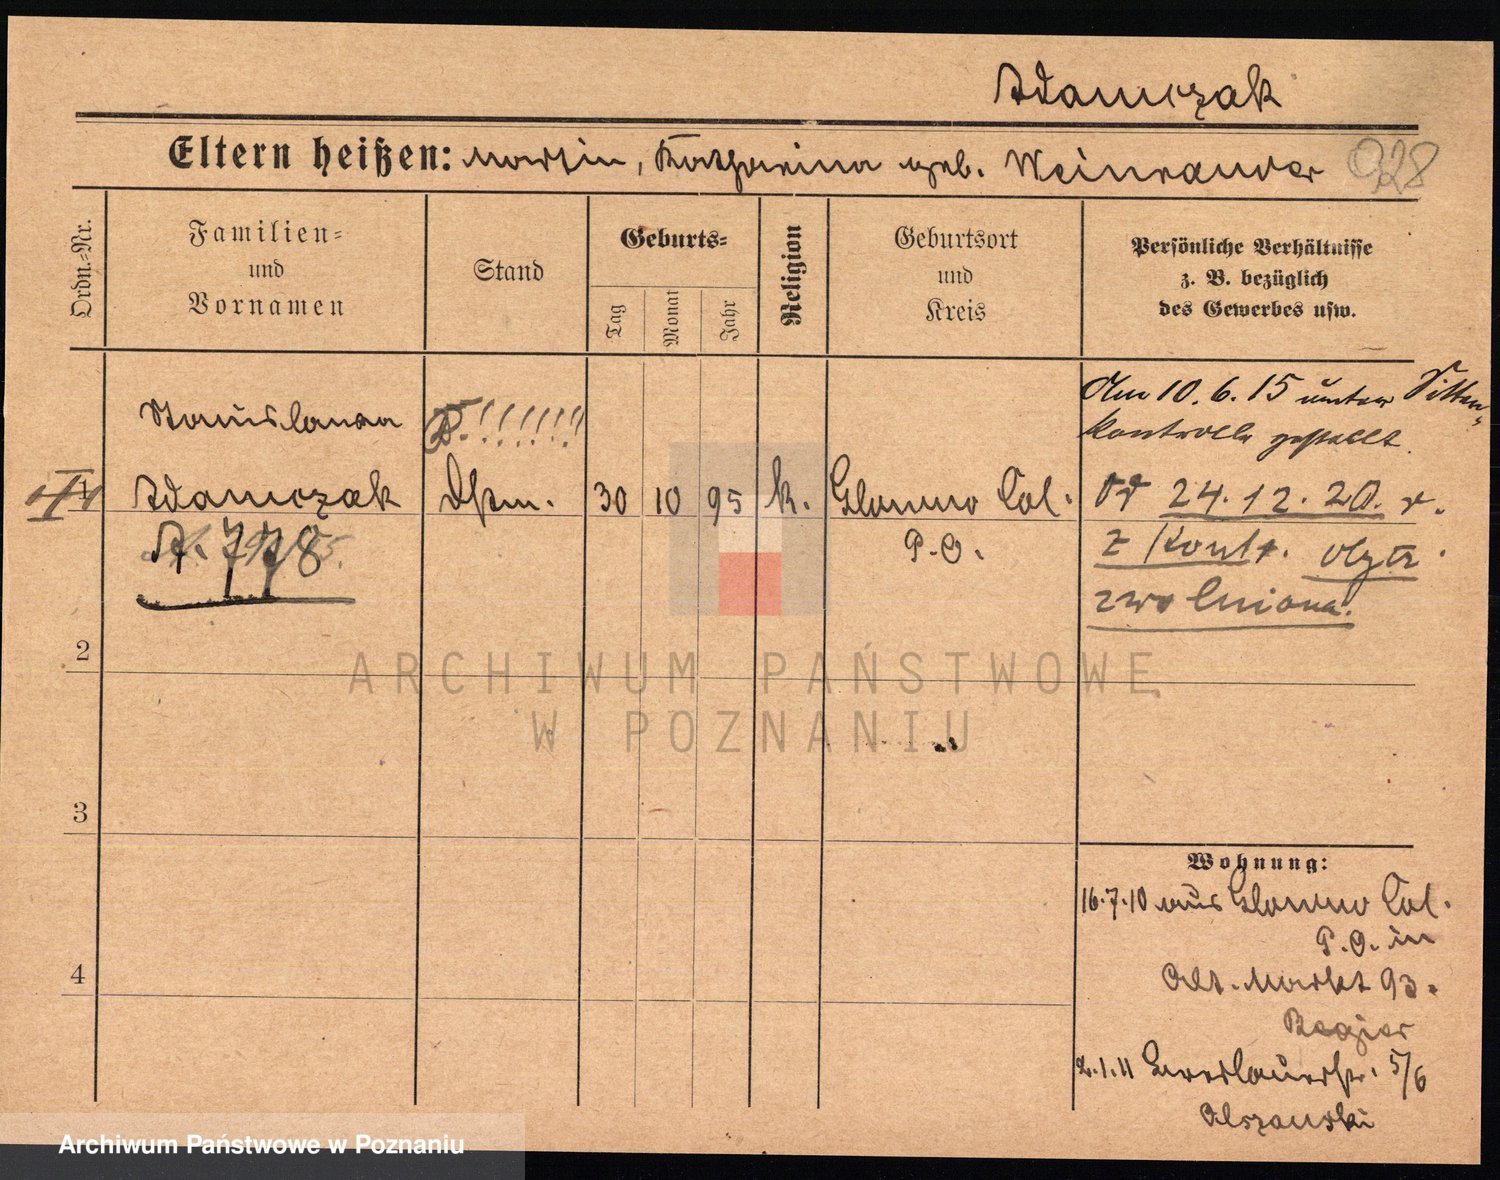 Adamczak
Eltern heißen: Martin, Katharina geb. Weinrauder 928
Ordn.=Nr.
Familien=
und
Vornamen
Stand
Geburts=
Tag
Monat
Jahr
Religion
Geburtsort
und
Kreis
Persönliche Verhältnisse
z. B. bezüglich
des Gewerbes usw.
Stanislawa
P.!!!!!!!
Am 10.6.15 unter Sitten-
kontrolle gestellt.
1 Adamczak Dstm. 30 10 95 k. Glowno Col.
P.O.
A. 778
od 24.12.20. r.
z Kontr.
zwolniona.
2
3
4
Wohnung:
16.7.10 aus Glowno Col.
P.O. in
Alt. Markt 93.
Regier
2.1.11 Breslauerstr. 5/6
Olszanski
ARCHIWUM PAŃSTWOWE
W POZNANIU
Archiwum Państwowe w Poznaniu